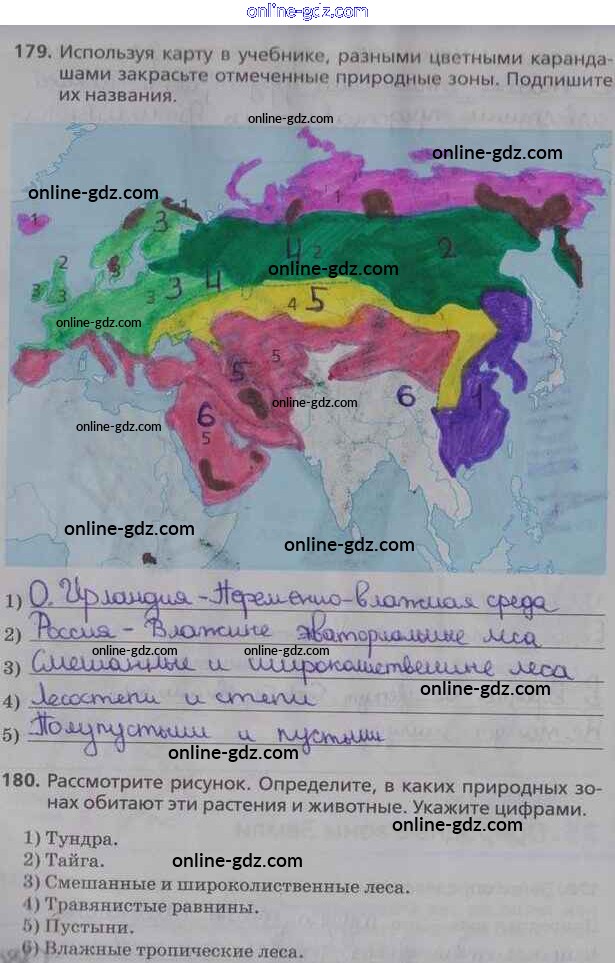 online-gdz.com
179. Используя карту в учебнике, разными цветными каранда-
шами закрасьте отмеченные природные зоны. Подпишите
их названия.
online-gdz.com
online-gdz.com
online-gdz.com
1
1
1
3
2
3
3
3
3
3
4
4
2
2
online-gdz.com
4
5
online-gdz.com
5
5
online-gdz.com
6
1
6
5
online-gdz.com
online-gdz.com
online-gdz.com
1) О. Ирландия - Переменно-влажная среда
2) Россия - Влажные экваториальные леса
online-gdz.com online-gdz.com
3) Смешанные и широколиственные леса
online-gdz.com
4) Лесостепи и степи
5) Полупустыни и пустыни
online-gdz.com
180. Рассмотрите рисунок. Определите, в каких природных зо-
нах обитают эти растения и животные. Укажите цифрами.
online-gdz.com
1) Тундра.
2) Тайга.
online-gdz.com
3) Смешанные и широколиственные леса.
4) Травянистые равнины.
5) Пустыни.
6) Влажные тропические леса.